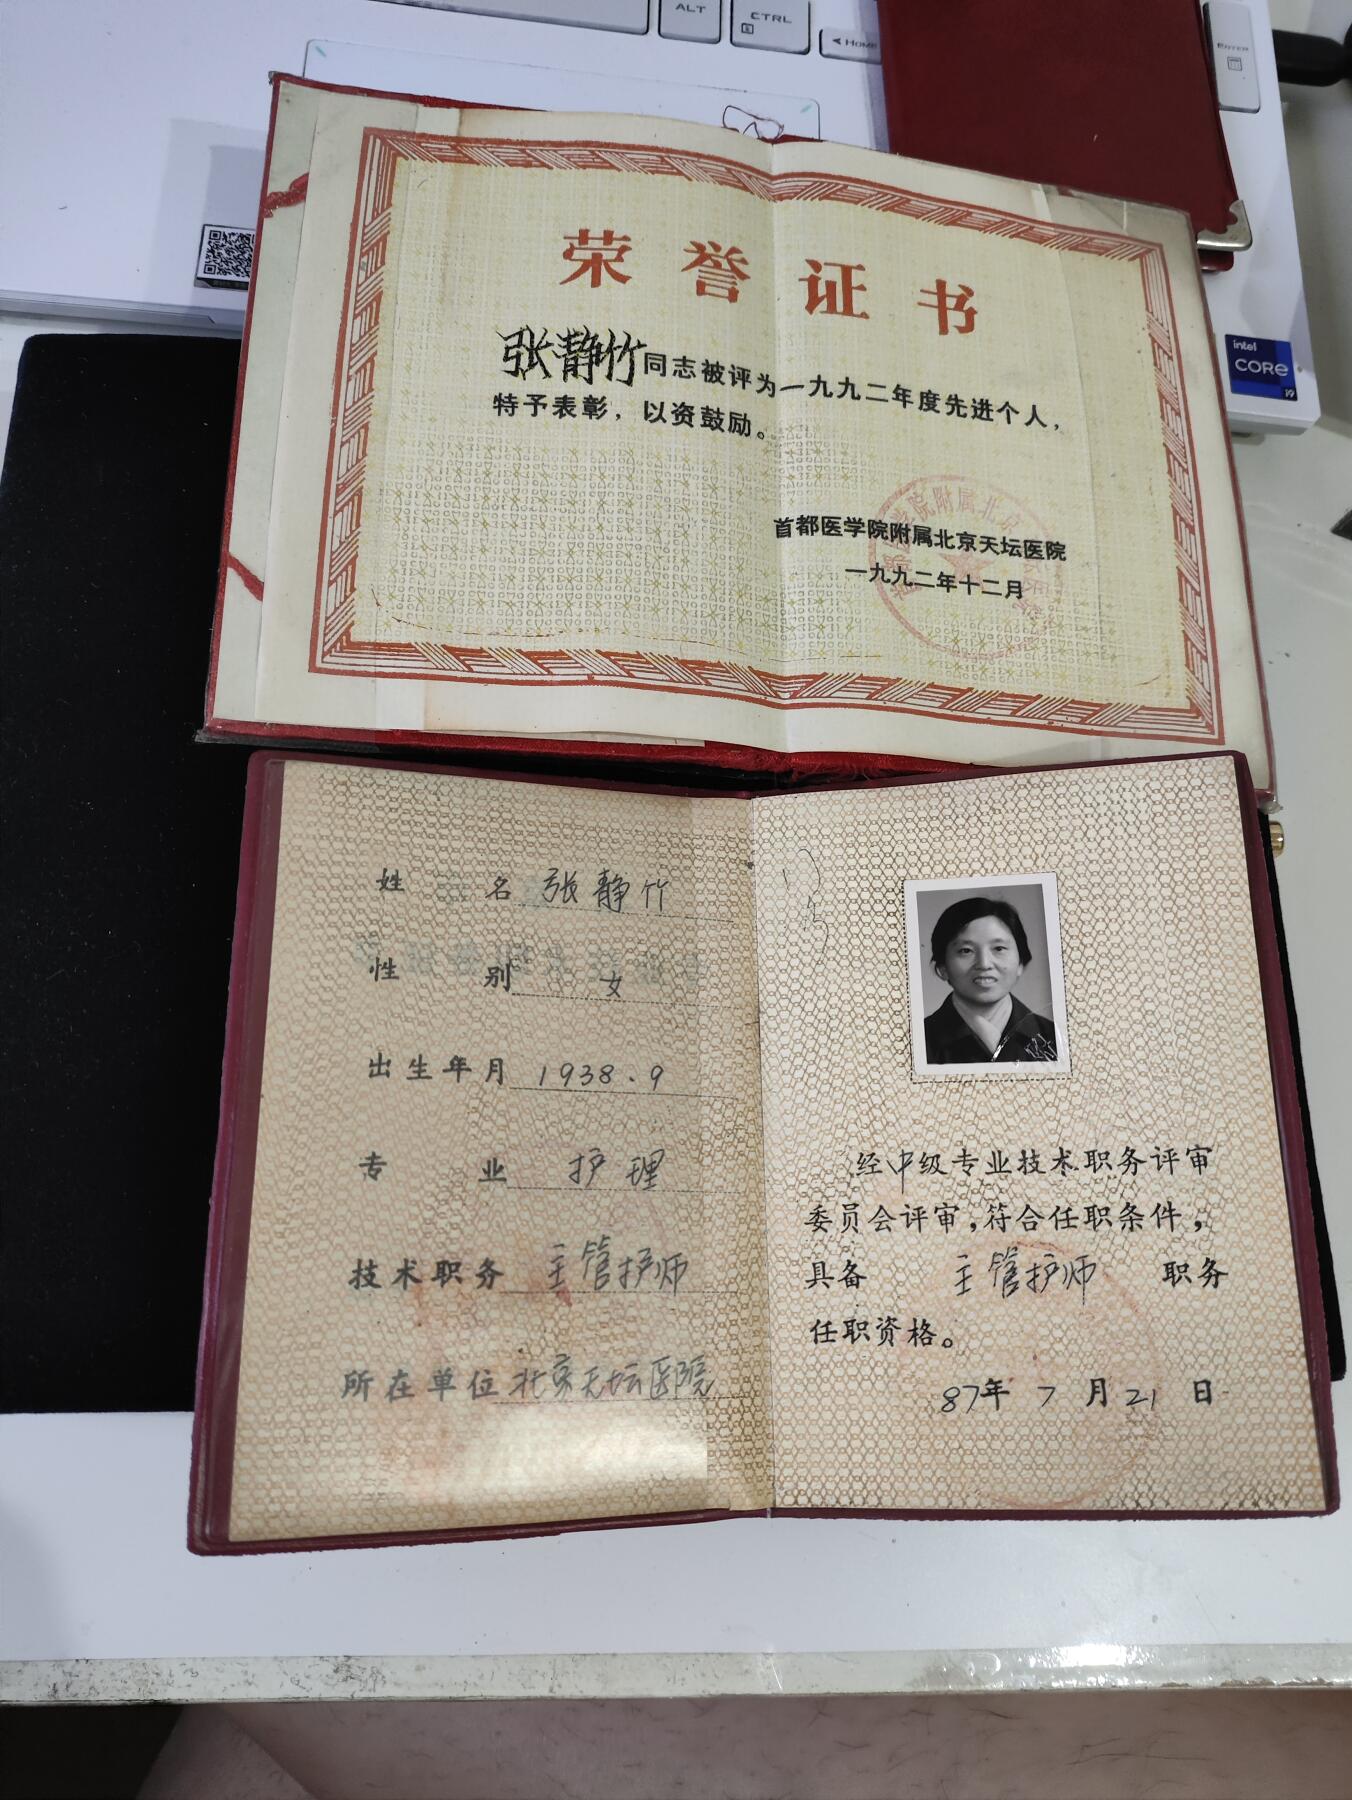 ALT
CTRL
HOME
ENTER
intel
CORE
i9
荣誉证书
张静竹同志被评为一九九二年度先进个人，
特予表彰，以资鼓励。
首都医学院附属北京天坛医院
一九九二年十二月
姓名 张静竹
性别 女
出生年月 1938.9
专业 护理
技术职务 主管护师
所在单位 北京天坛医院
经中级专业技术职务评审
委员会评审，符合任职条件，
具备 主管护师 职务
任职资格。
87年7月21日